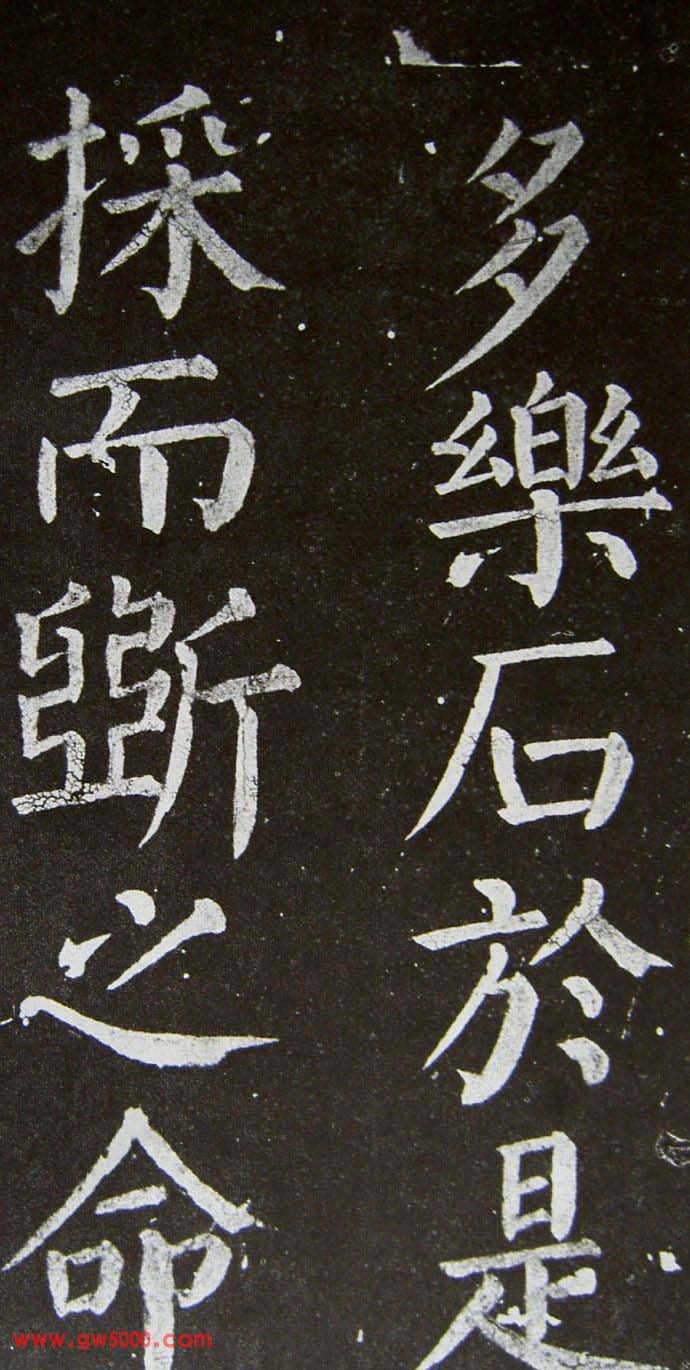 多樂石於是
採而斲之命
www.gw5000.com